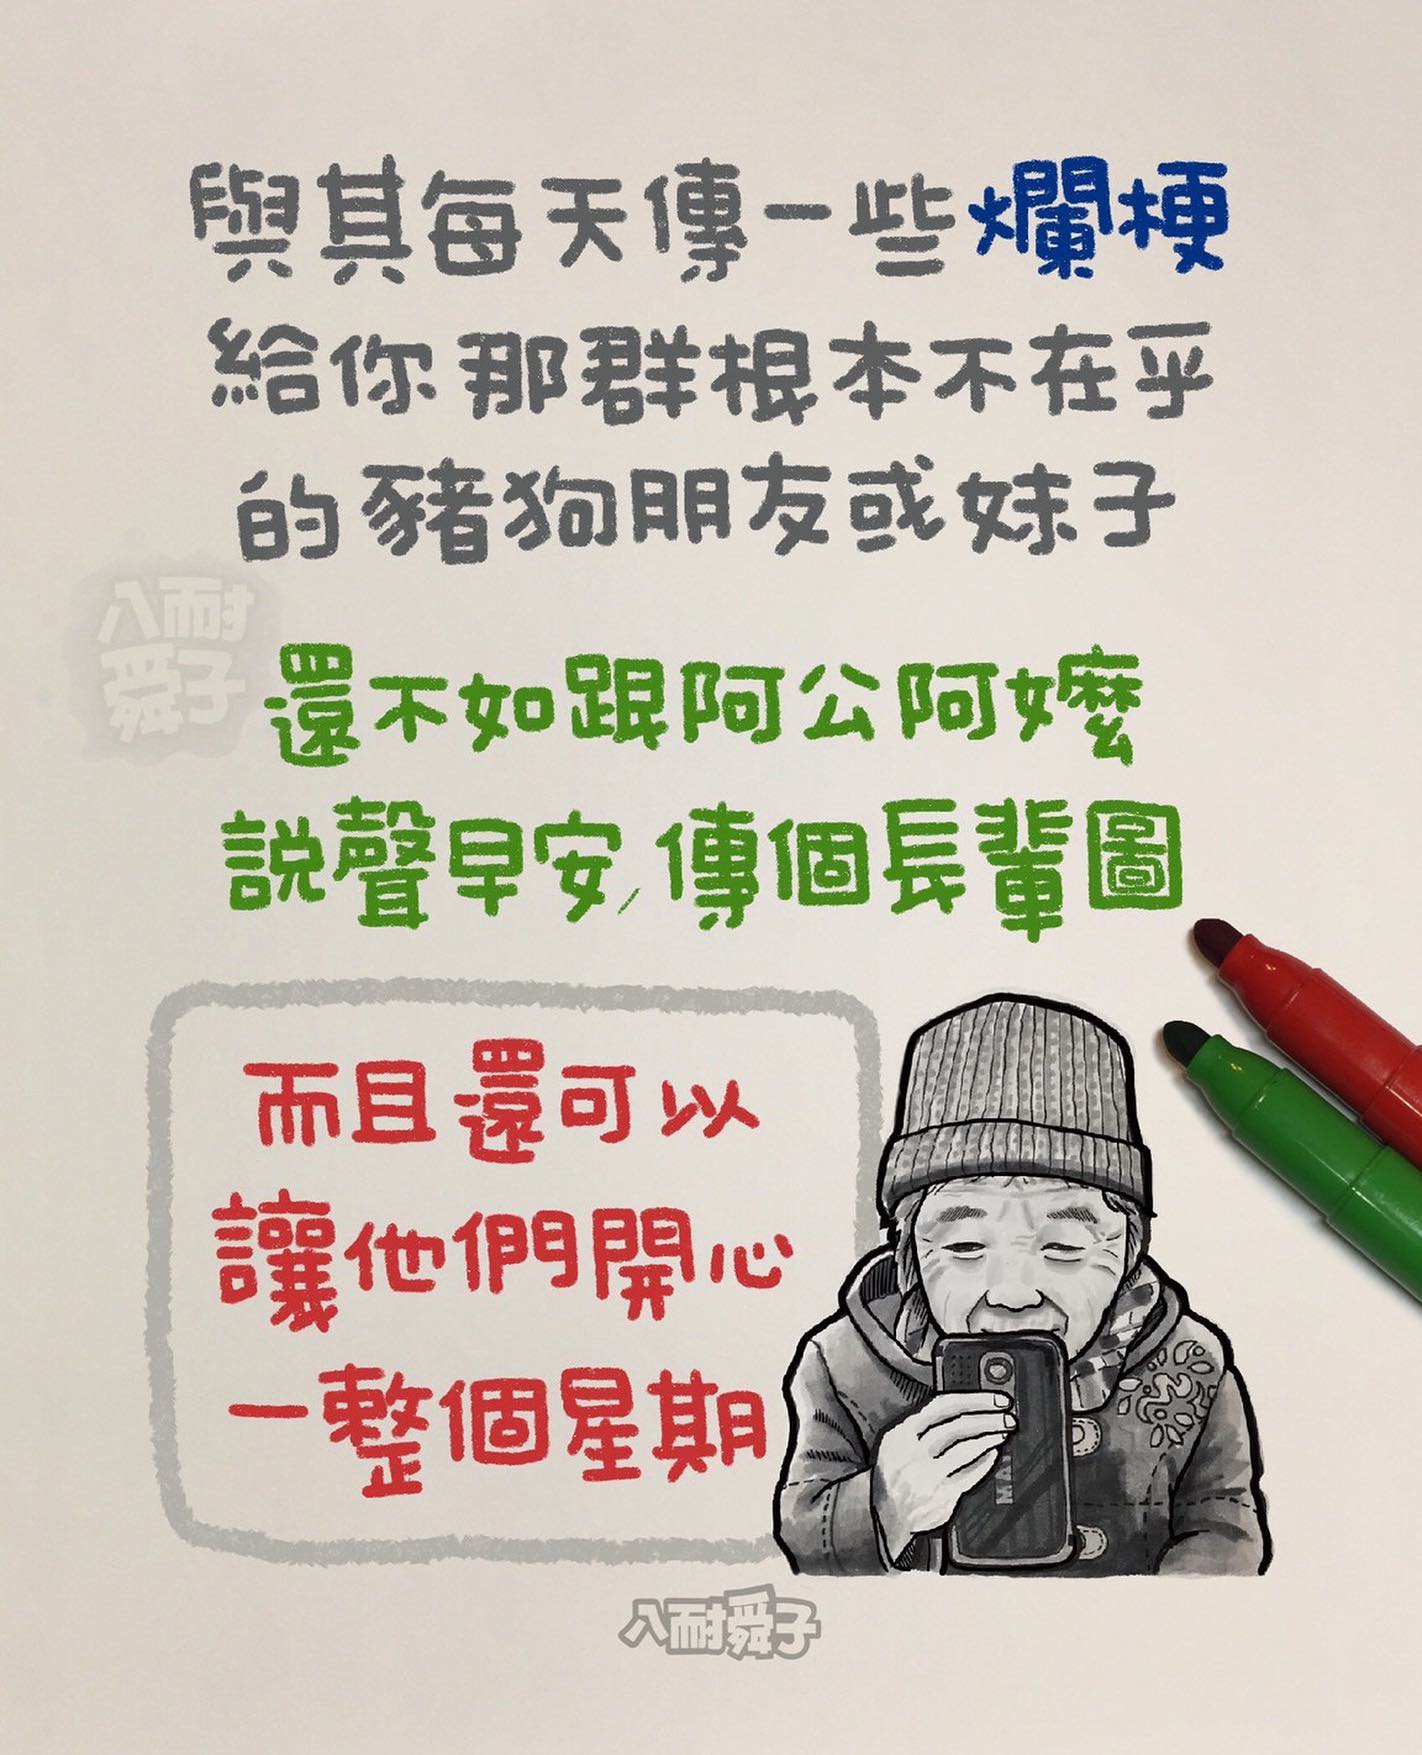 與其每天傳一些爛梗
給你那群根本不在乎
的豬狗朋友或妹子
八耐
舜子
還不如跟阿公阿嬤
說聲早安,傳個長輩圖
而且還可以
讓他們開心
一整個星期
八耐舜子